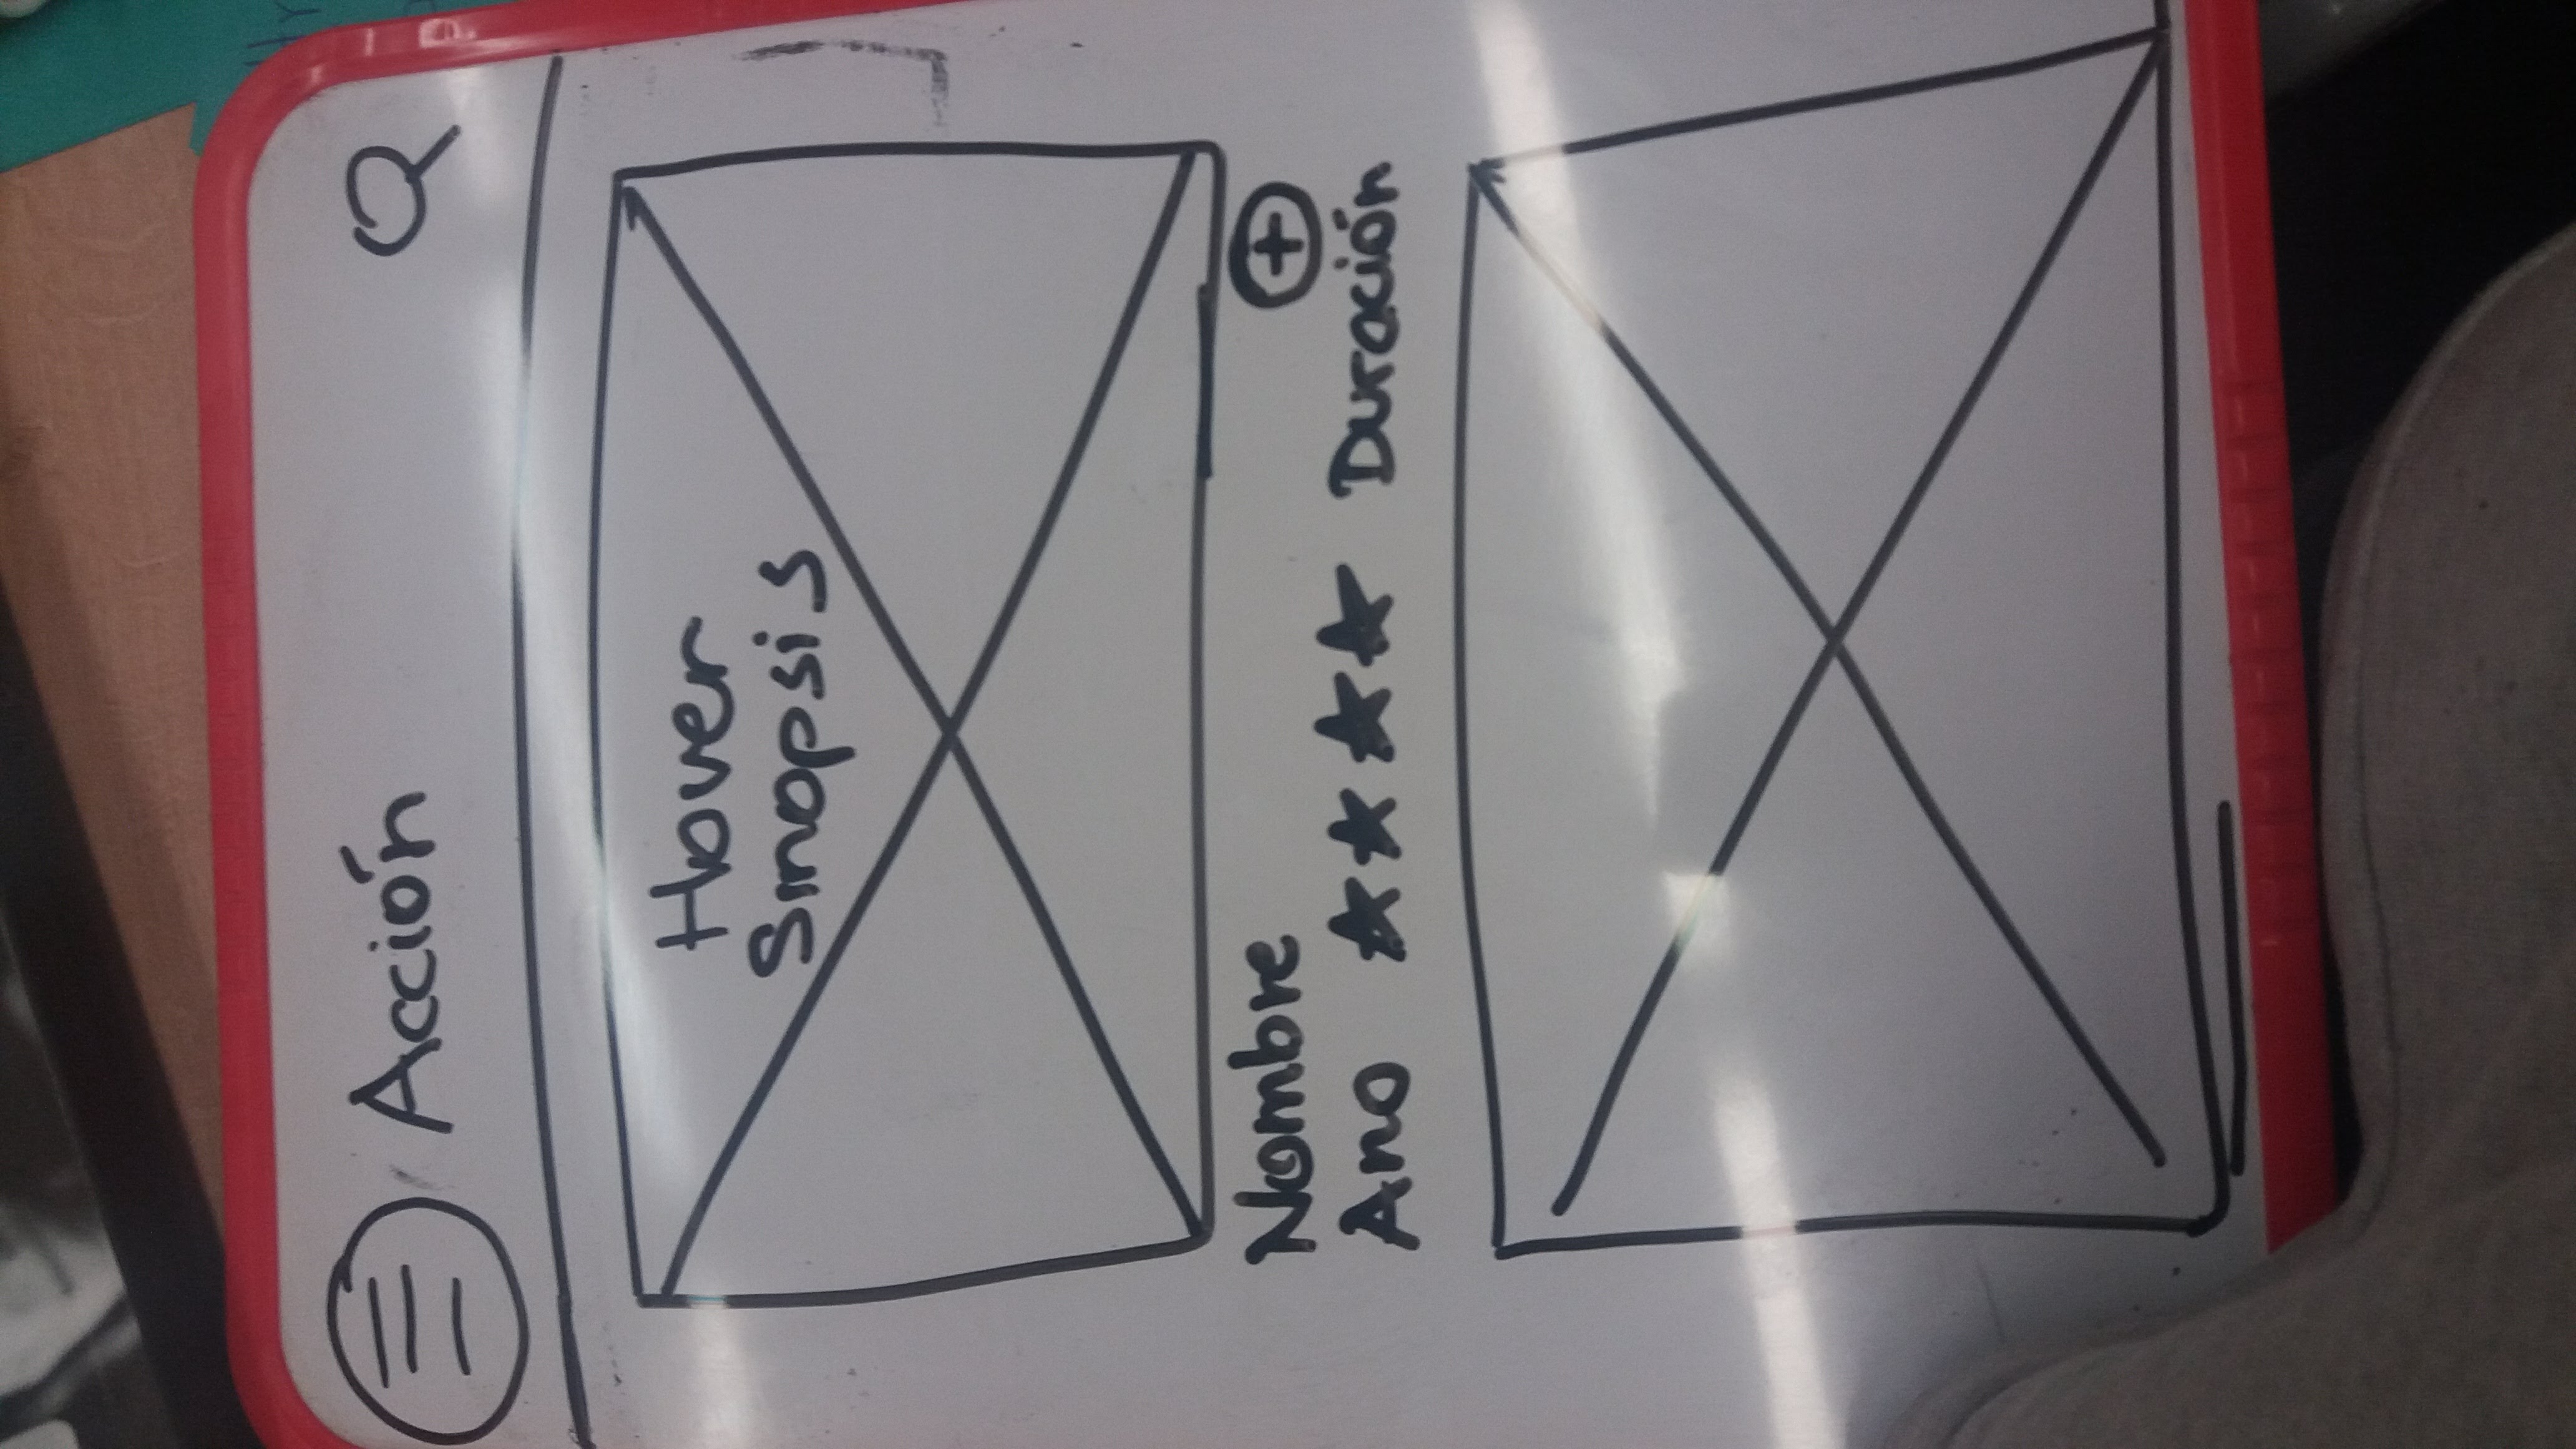 Acción
Hover
Sinopsis
Nombre +
Ano ★★★★ Duración